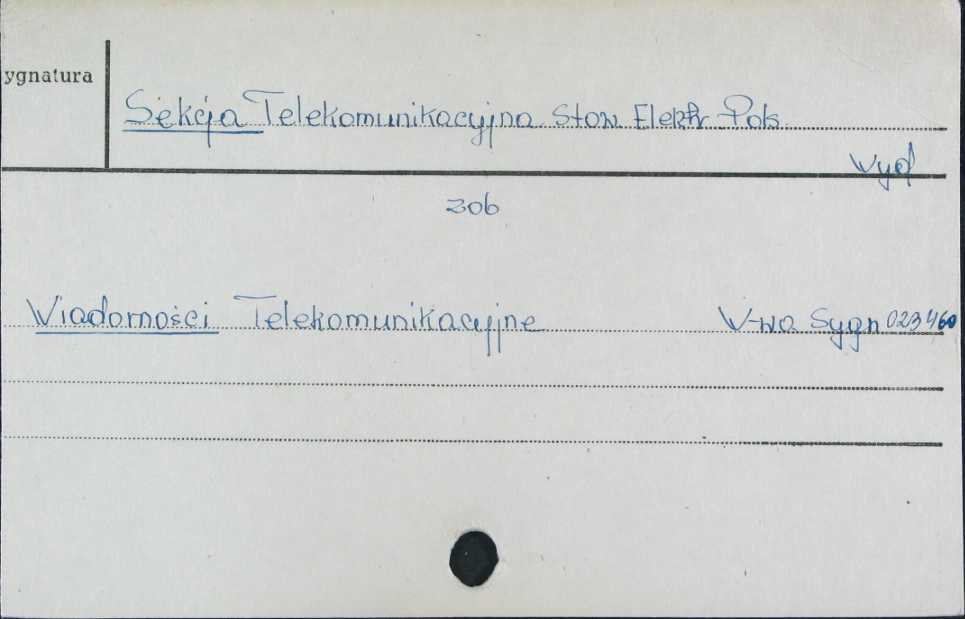 ygnatura
Sekcja Telekomunikacyjna Stow Elektr Pols
wyd
zob
Wiadomości Telekomunikacyjne W-wa Sygn 023460